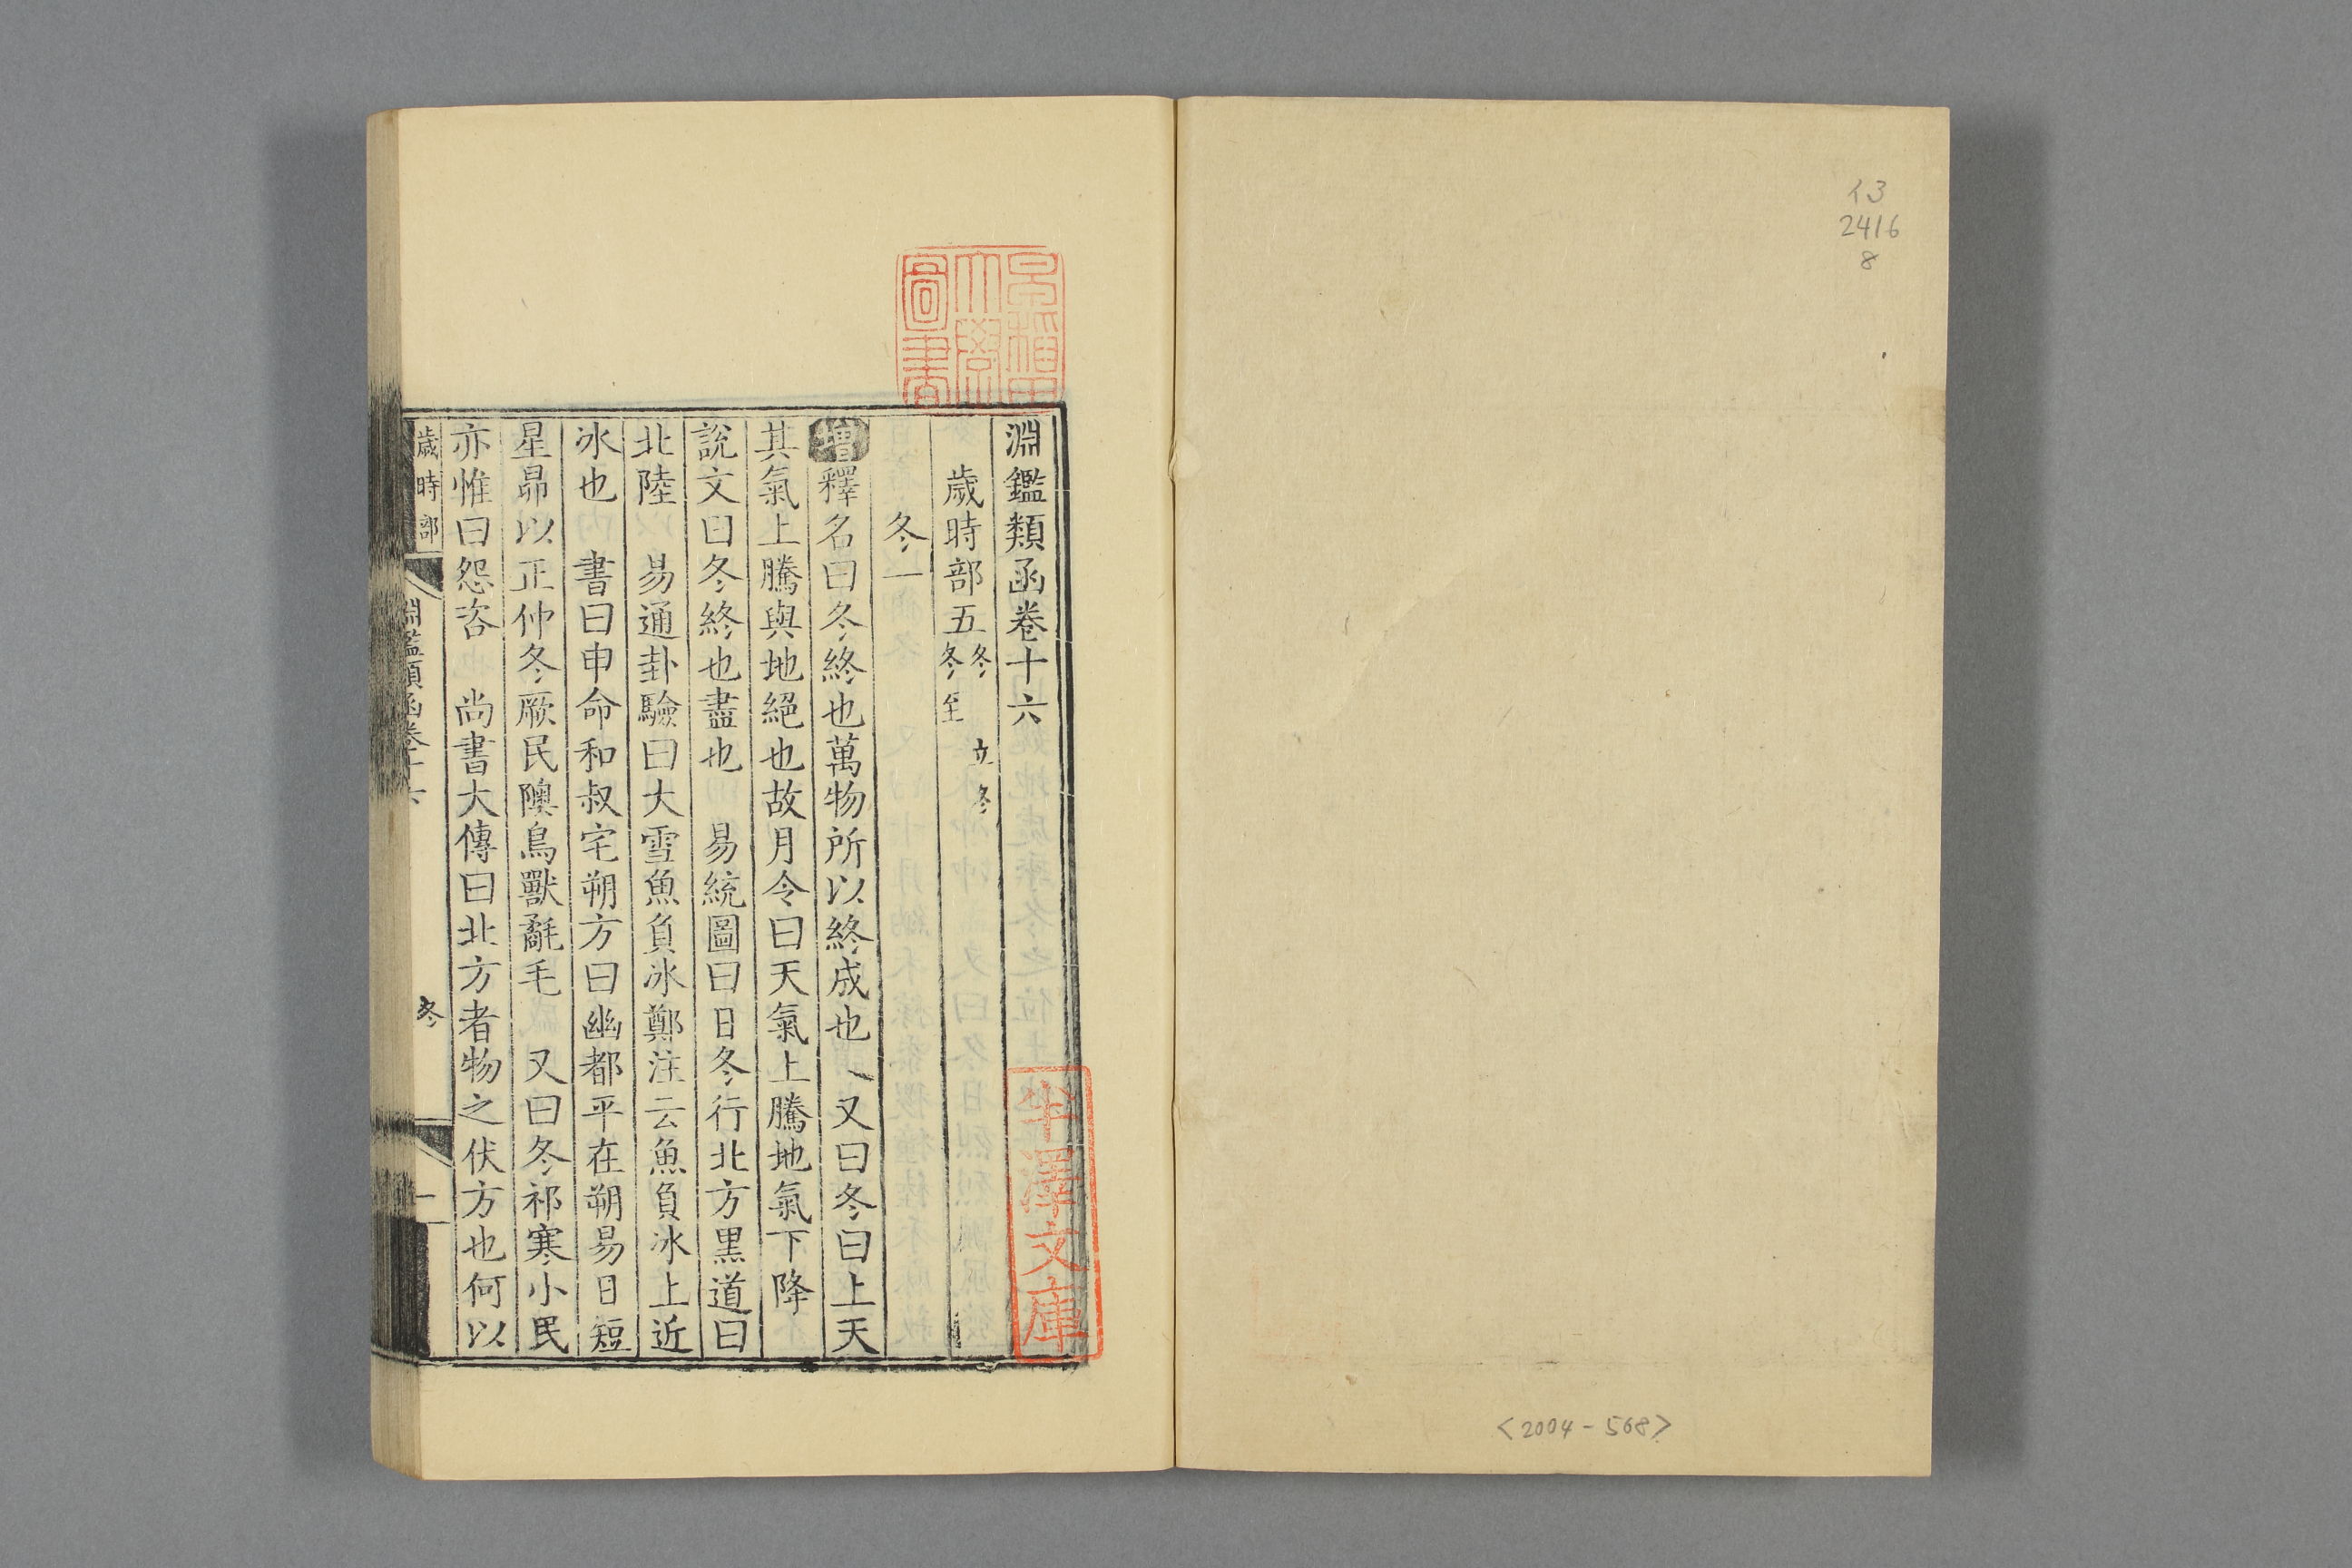 13
2416
8
<2004-568>
早稲田大學圖書
淵鑑類函卷十六
歲時部五 冬 立冬 冬至
冬一
增釋名曰冬終也萬物所以終成也 又曰冬曰上天
其氣上騰與地絕也故月令曰天氣上騰地氣下降
說文曰冬終也盡也 易統圖曰日冬行北方黑道曰
北陸 易通卦驗曰大雪魚負冰鄭注云魚負冰上近
冰也 書曰申命和叔宅朔方曰幽都平在朔易日短
星昴以正仲冬厥民隩鳥獸氄毛 又曰冬祁寒小民
亦惟曰怨咨 尚書大傳曰北方者物之伏方也何以
歲時部 淵鑑類函卷十六 冬 一
半澤文庫